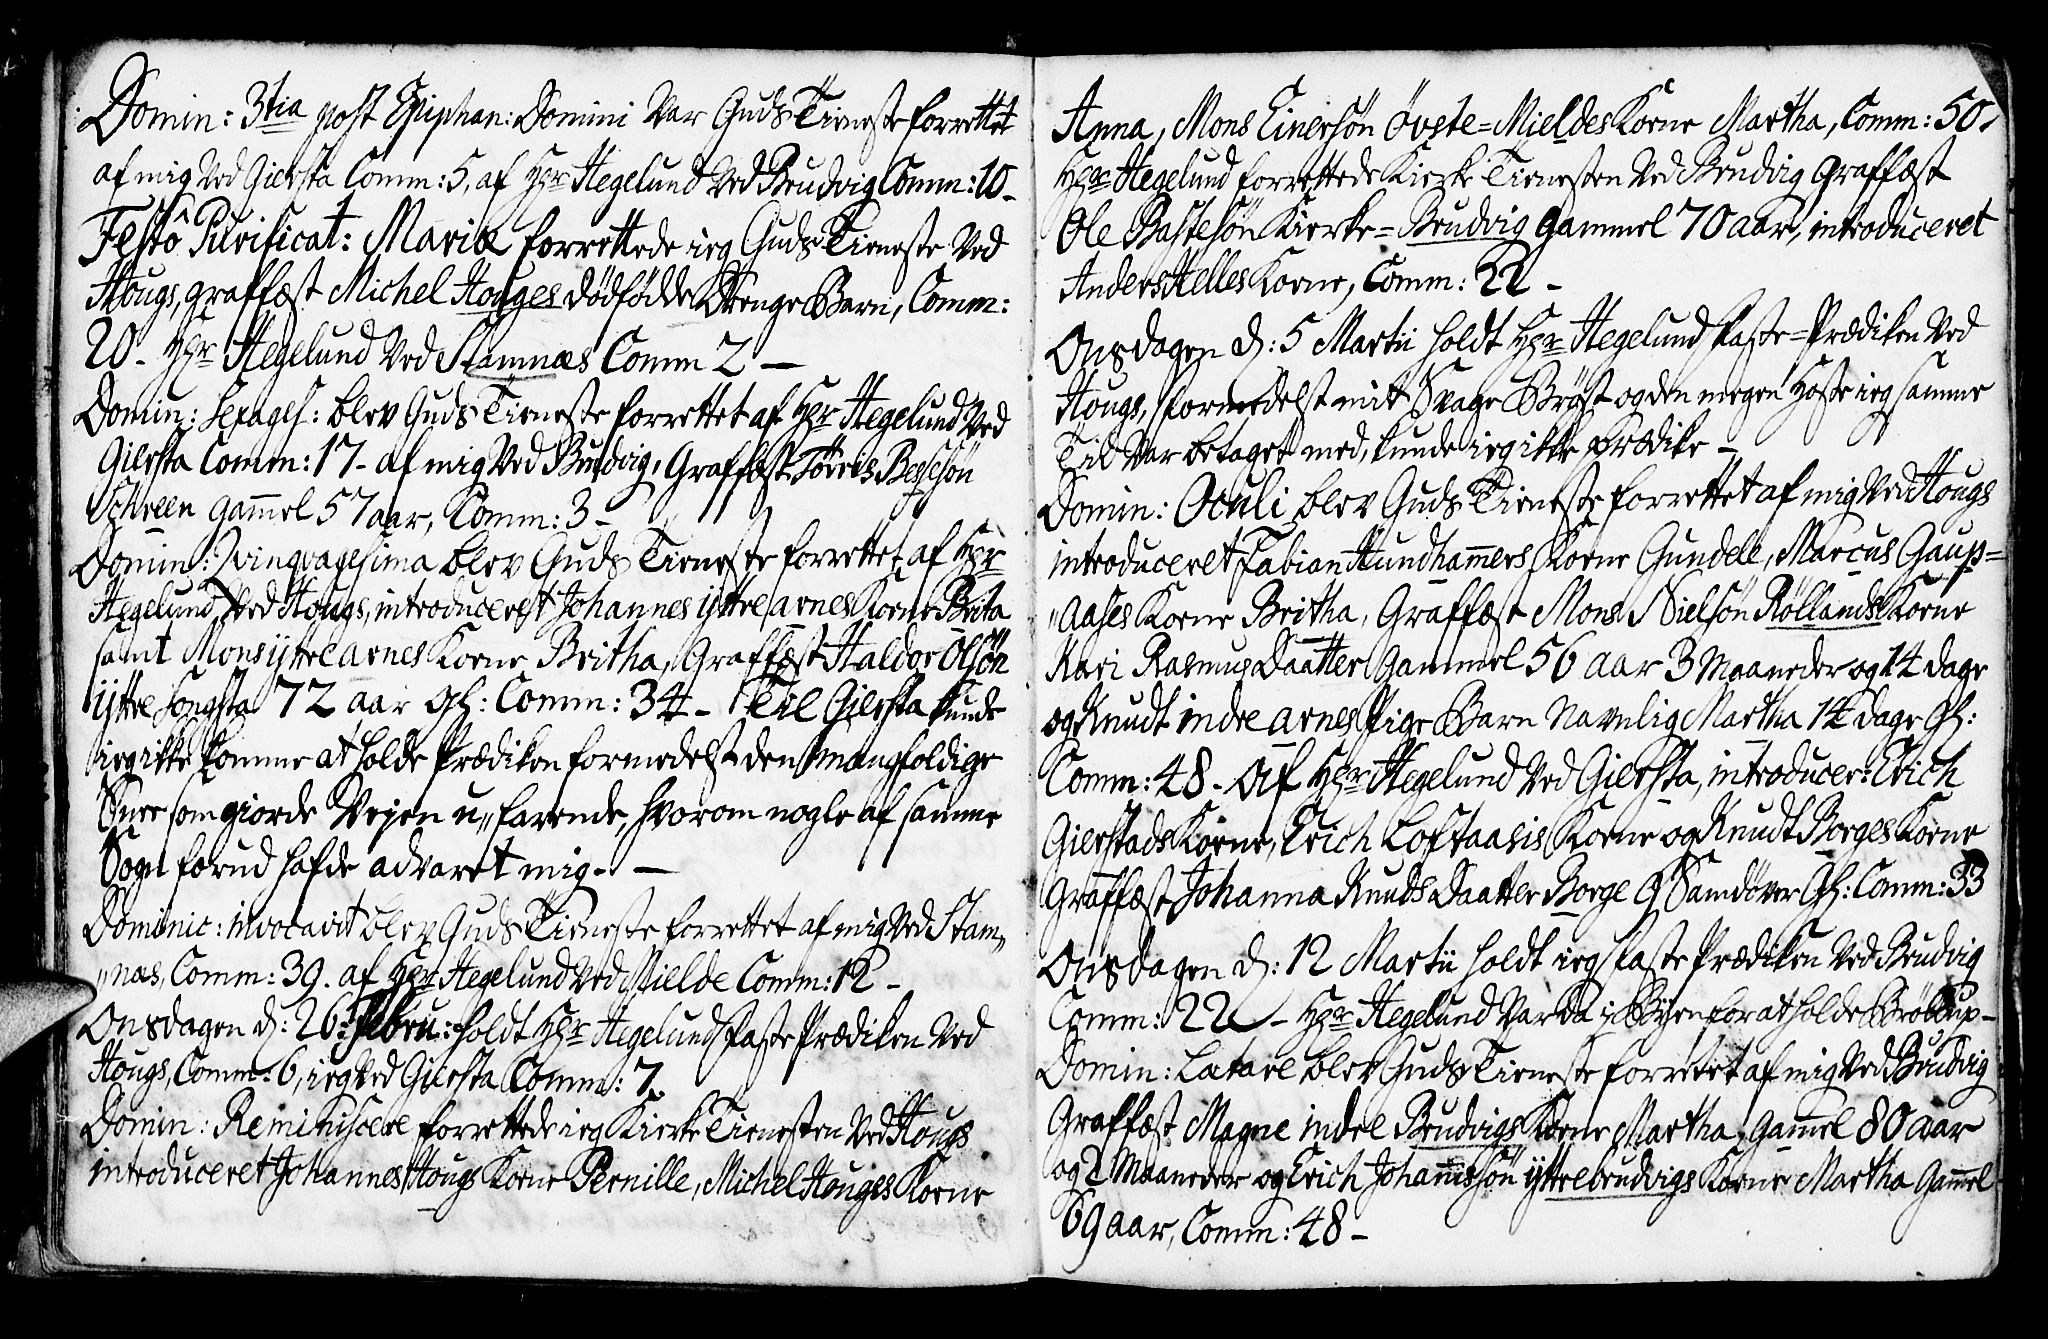 Domin: 3tia post Epiphan: Domini var Guds Tieneste forrettet
af mig ved Giersta Comm: 5, af Hr Hegelund ved Brudvig Comm: 10 -
Festô Purificat: Mariæ forrettede ieg Guds Tieneste ved
Hougs, graffæst Michel Houges dödfödde Drenge Barn, Comm:
20 - Hr Hegelund ved Stamnæs Comm 2 -
Domin: Sexages: blev Guds Tieneste forrettet af Hr Hegelund ved
Giersta Comm: 17 - af mig ved Brudvig, Graffæst Törris Besseson
Schreen gam̄el 57 aar, Comm: 3 -
Domin: Qvinqvagesima blev Guds Tieneste forrettet af Hr
Hegelund ved Hougs, introduceret Johannes ÿttrearnes Kone Brita
samt Mons ÿttrearnes Kone Britha, Graffæst Haldor Olsön
ÿttre Songsta 72 aar Gl: Comm: 34 - Til Giersta kunde
ieg ikke komme at holde Prædiken formedelst den mangfoldige
Snee som giorde Vejen u„farende, hvorom nogle af samme
Sogn forud hafde advaret mig - -
Dominic: invocavit blev Guds Tieneste forrettet af mig ved Stam„
„næs, Comm: 39. af Hr Hegelund ved Mielde Comm: 12 -
Onsdagen d: 26 Febru: holdt Hr Hegelund Faste Prædiken ved
Hougs, Comm: 6, ieg ved Giersta Comm: 7.
Domin: Reminiscere forrettede ieg Kirke Tienesten ved Hougs
introduceret Johannes Hougs Kone Pernille, Michel Houges Kone
Anna, Mons Einersön Övste=Mieldes Kone Martha, Comm: 50.
Hr Hegelund forrettede Kierke Tienesten ved Brudvig Graffæst
Ole Bastesön Kierke=Brudvig gammel 70 aar, introduceret
Anders Helles Kone, Comm: 22 -
Onsdagen d: 5 Martii holdt Hr Hegelund Faste=Prædiken ved
Hougs, formedelst mit svage Bröst og den megen Hoste ieg samme
Tid var betaget med, kunde ieg ikke prædike -
Domin: Oculi blev Guds Tieneste forrettet af mig ved Hougs
introduceret Fabian Hundham̄ers Kone Gundele, Marcus Gaup=
„aases Kone Britha, Graffæst Mons Nielsön Röllands Kone
Kari Rasmus Daatter Gammel 56 aar 3 Maaneder og 14 dage
og Knudt indre arnes Pige Barn Navnlig Martha 14 dage Gl:
Comm: 48 - Af Hr Hegelund ved Giersta, introducer: Erich
Gierstads Kone, Erich Loftaasis Kone og Knudt Borges Kone
Graffæst Johanna Knuds Daatter Borge 9 Samdöver Gl: Comm: 33
Onsdagen d: 12 Martii holdt ieg Faste Prædiken ved Brudvig
Comm: 22 - Hr Hegelund var da i Byen for at holde Bröllup -
Domin: Lætare blev Guds Tieneste forrettet af mig ved Brudvig
Graffæst Magne indre Brudvigs Kone Martha, gam̄el 80 aar
og 2 Maaneder og Erich Johannissön ÿttrebrudvigs Kone Martha gam̄el
69 aar, Comm: 48 -